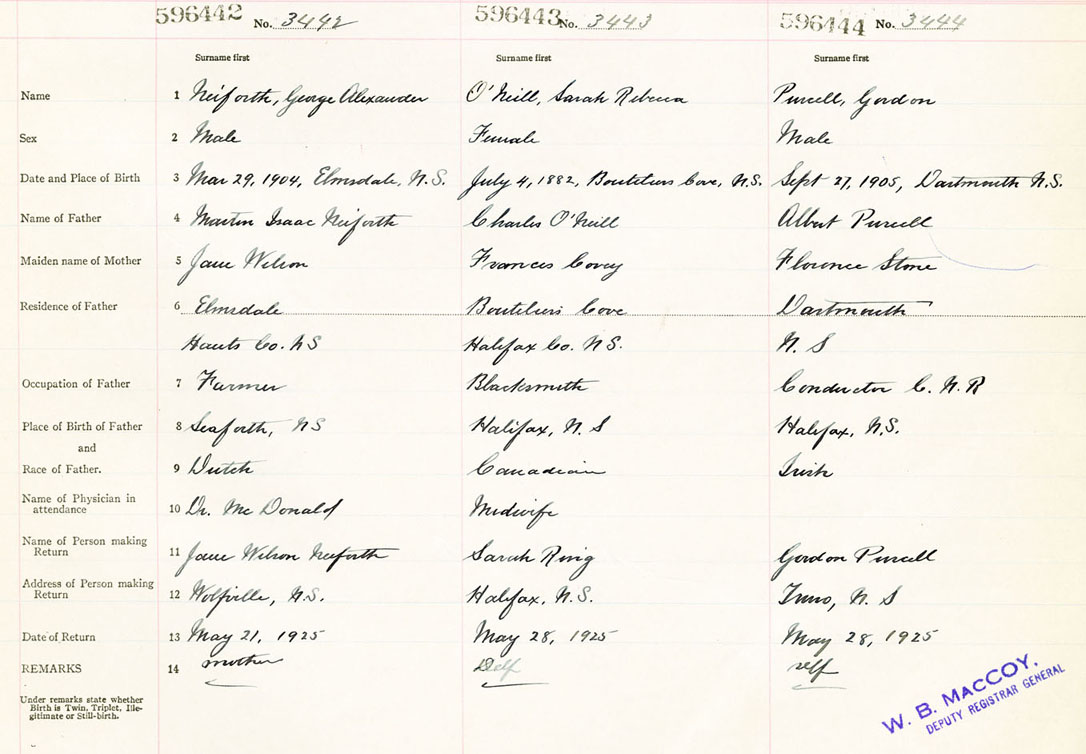 596442 No. 3442 596443 No. 3443 596444 No. 3444
Surname first Surname first Surname first
Name 1 Neiforth, George Alexander O'Neill, Sarah Rebecca Purcell, Gordon
Sex 2 Male Female Male
Date and Place of Birth 3 Mar 29, 1904, Elmsdale, N.S. July 4, 1882, Boutiliers Cove, N.S. Sept 27, 1905, Dartmouth N.S.
Name of Father 4 Martin Isaac Neiforth Charles O'Neill Albert Purcell
Maiden name of Mother 5 Jane Wilson Frances Covey Florence Stone
Residence of Father 6 Elmsdale Boutiliers Cove Dartmouth
Hants Co. NS Halifax Co. NS. N. S
Occupation of Father 7 Farmer Blacksmith Conductor C. N. R
Place of Birth of Father 8 Seaforth, NS Halifax, N. S Halifax, N.S.
and
Race of Father. 9 Dutch Canadian Irish
Name of Physician in
attendance 10 Dr. McDonald Midwife
Name of Person making
Return 11 Jane Wilson Neiforth Sarah Ring Gordon Purcell
Address of Person making
Return 12 Wolfville, N.S. Halifax, N.S. Truro, N. S
Date of Return 13 May 21, 1925 May 28, 1925 May 28, 1925
REMARKS 14 mother Self self
Under remarks state whether
Birth is Twin, Triplet, Ille-
gitimate or Still-birth.
W. B. MACCOY,
DEPUTY REGISTRAR GENERAL